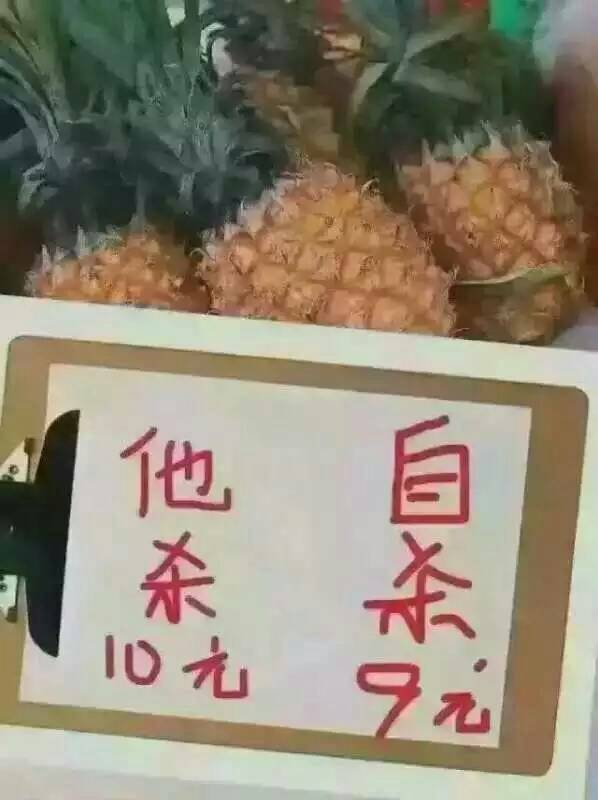 他杀
10元
自杀
9元